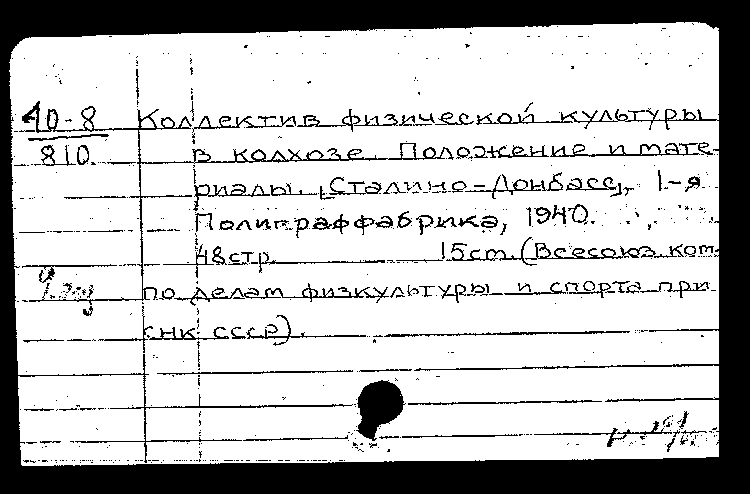 40-8 Коллектив физической культуры
810. в колхозе. Положение и мате-
риалы. [Сталино-Донбасс], 1-я
Полиграффабрика, 1940.
48стр. 15cm. (Всесоюз. ком.
по делам физкультуры и спорта при
СНК СССР).